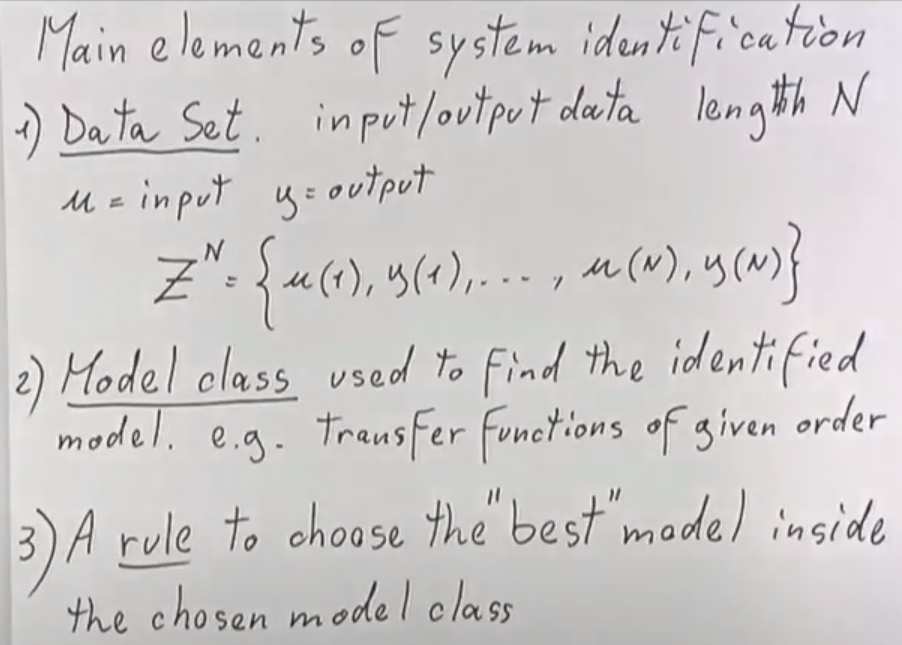 Main elements of system identification
1) Data Set. input/output data length N
u = input y = output
Z^N = {u(1), y(1), ..., u(N), y(N)}
2) Model class used to find the identified
model. e.g. transfer functions of given order
3) A rule to choose the "best" model inside
the chosen model class